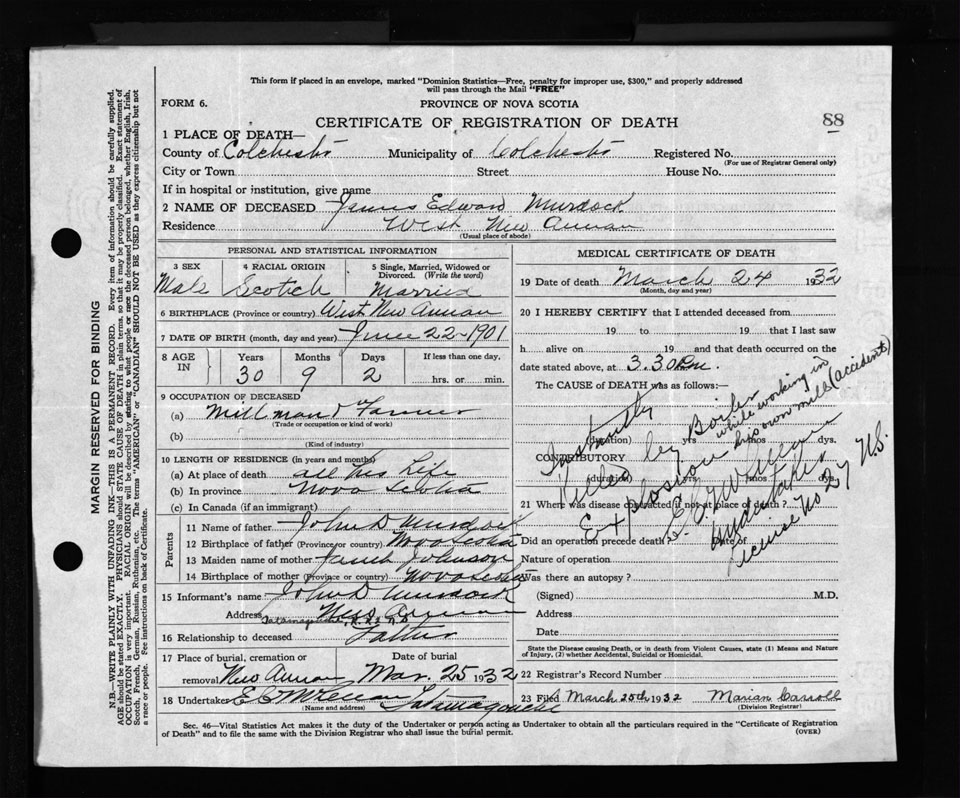 This form if placed in an envelope, marked "Dominion Statistics—Free, penalty for improper use, $300," and properly addressed
will pass through the Mail "FREE"
FORM 6.
PROVINCE OF NOVA SCOTIA
CERTIFICATE OF REGISTRATION OF DEATH
88
1 PLACE OF DEATH—
County of Colchester Municipality of Colchester Registered No.
(For use of Registrar General only)
City or Town Street House No.
If in hospital or institution, give name
2 NAME OF DECEASED James Edward Murdock
Residence West New Annan
(Usual place of abode)
PERSONAL AND STATISTICAL INFORMATION
3 SEX 4 RACIAL ORIGIN 5 Single, Married, Widowed or
Divorced. (Write the word)
Male Scotich Married
6 BIRTHPLACE (Province or country) West New Annan
7 DATE OF BIRTH (month, day and year) June 22-1901
8 AGE IN Years Months Days If less than one day,
30 9 2 hrs. or min.
9 OCCUPATION OF DECEASED
(a) Mill man & Farmer
(Trade or occupation or kind of work)
(b)
(Kind of industry)
10 LENGTH OF RESIDENCE (in years and months)
(a) At place of death all his Life
(b) In province Nova Scotia
(c) In Canada (if an immigrant)
Parents
11 Name of father John D Murdock
12 Birthplace of father (Province or country) Nova Scotia
13 Maiden name of mother Janet Johnson
14 Birthplace of mother (Province or country) Nova Scotia
15 Informant's name John D Murdock
Address New Annan
Tatamagouche,
16 Relationship to deceased Father
17 Place of burial, cremation or Date of burial
removal New Annan, Mar. 25 1932
18 Undertaker Tatamagouche
(Name and address)
MEDICAL CERTIFICATE OF DEATH
19 Date of death March 24 1932
(Month, day and year)
20 I HEREBY CERTIFY that I attended deceased from
19 to 19 that I last saw
h alive on 19 and that death occurred on the
date stated above, at 3.30 P.m.
The CAUSE of DEATH was as follows:
Instantly
Killed by Boiler
Explosion while working in
his own mill (accident)
Undertaker
License No 37 N.S.
(duration) yrs mos dys.
CONTRIBUTORY
(duration) yrs mos dys.
21 Where was disease contracted if not at place of death?
Did an operation precede death Date of
Nature of operation
Was there an autopsy?
(Signed) M.D.
Address
Date
State the Disease causing Death, or in death from Violent Causes, state (1) Means and Nature
of Injury, (2) whether Accidental, Suicidal or Homicidal.
22 Registrar's Record Number
23 Filed March 25th 1932 Marian Carroll
(Division Registrar)
Sec. 46—Vital Statistics Act makes it the duty of the Undertaker or person acting as Undertaker to obtain all the particulars required in the "Certificate of Registration
of Death" and to file the same with the Division Registrar who shall issue the burial permit.
(OVER)
MARGIN RESERVED FOR BINDING
N.B.—WRITE PLAINLY WITH UNFADING INK—THIS IS A PERMANENT RECORD. Every item of information should be carefully supplied.
AGE should be stated EXACTLY. PHYSICIANS should STATE CAUSE OF DEATH in plain terms, so that it may be properly classified. Exact statement of
OCCUPATION is very important. RACIAL ORIGIN will be described by stating to what people or race the deceased person belonged, whether English, Irish,
Scotch, French, German, Russian, Ruthenian, etc. The terms "AMERICAN" or "CANADIAN" SHOULD NOT BE USED as they express citizenship but not
a race or people. See instructions on back of Certificate.